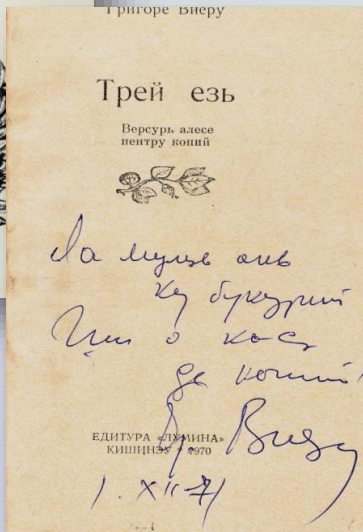 Григоре Виеру
Трей езь
Версурь алесе
пентру копий
Ла мулць ань
ку букурий
Ши о касэ
де копий!
Гр. Виеру
ЕДИТУРА «ЛУМИНА»
КИШИНЭУ * 1970
1. XII-71